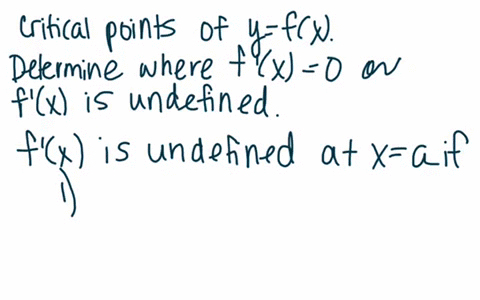 Critical points of y=f(x).
Determine where f'(x)=0 or
f'(x) is undefined.
f'(x) is undefined at x=a if
1)